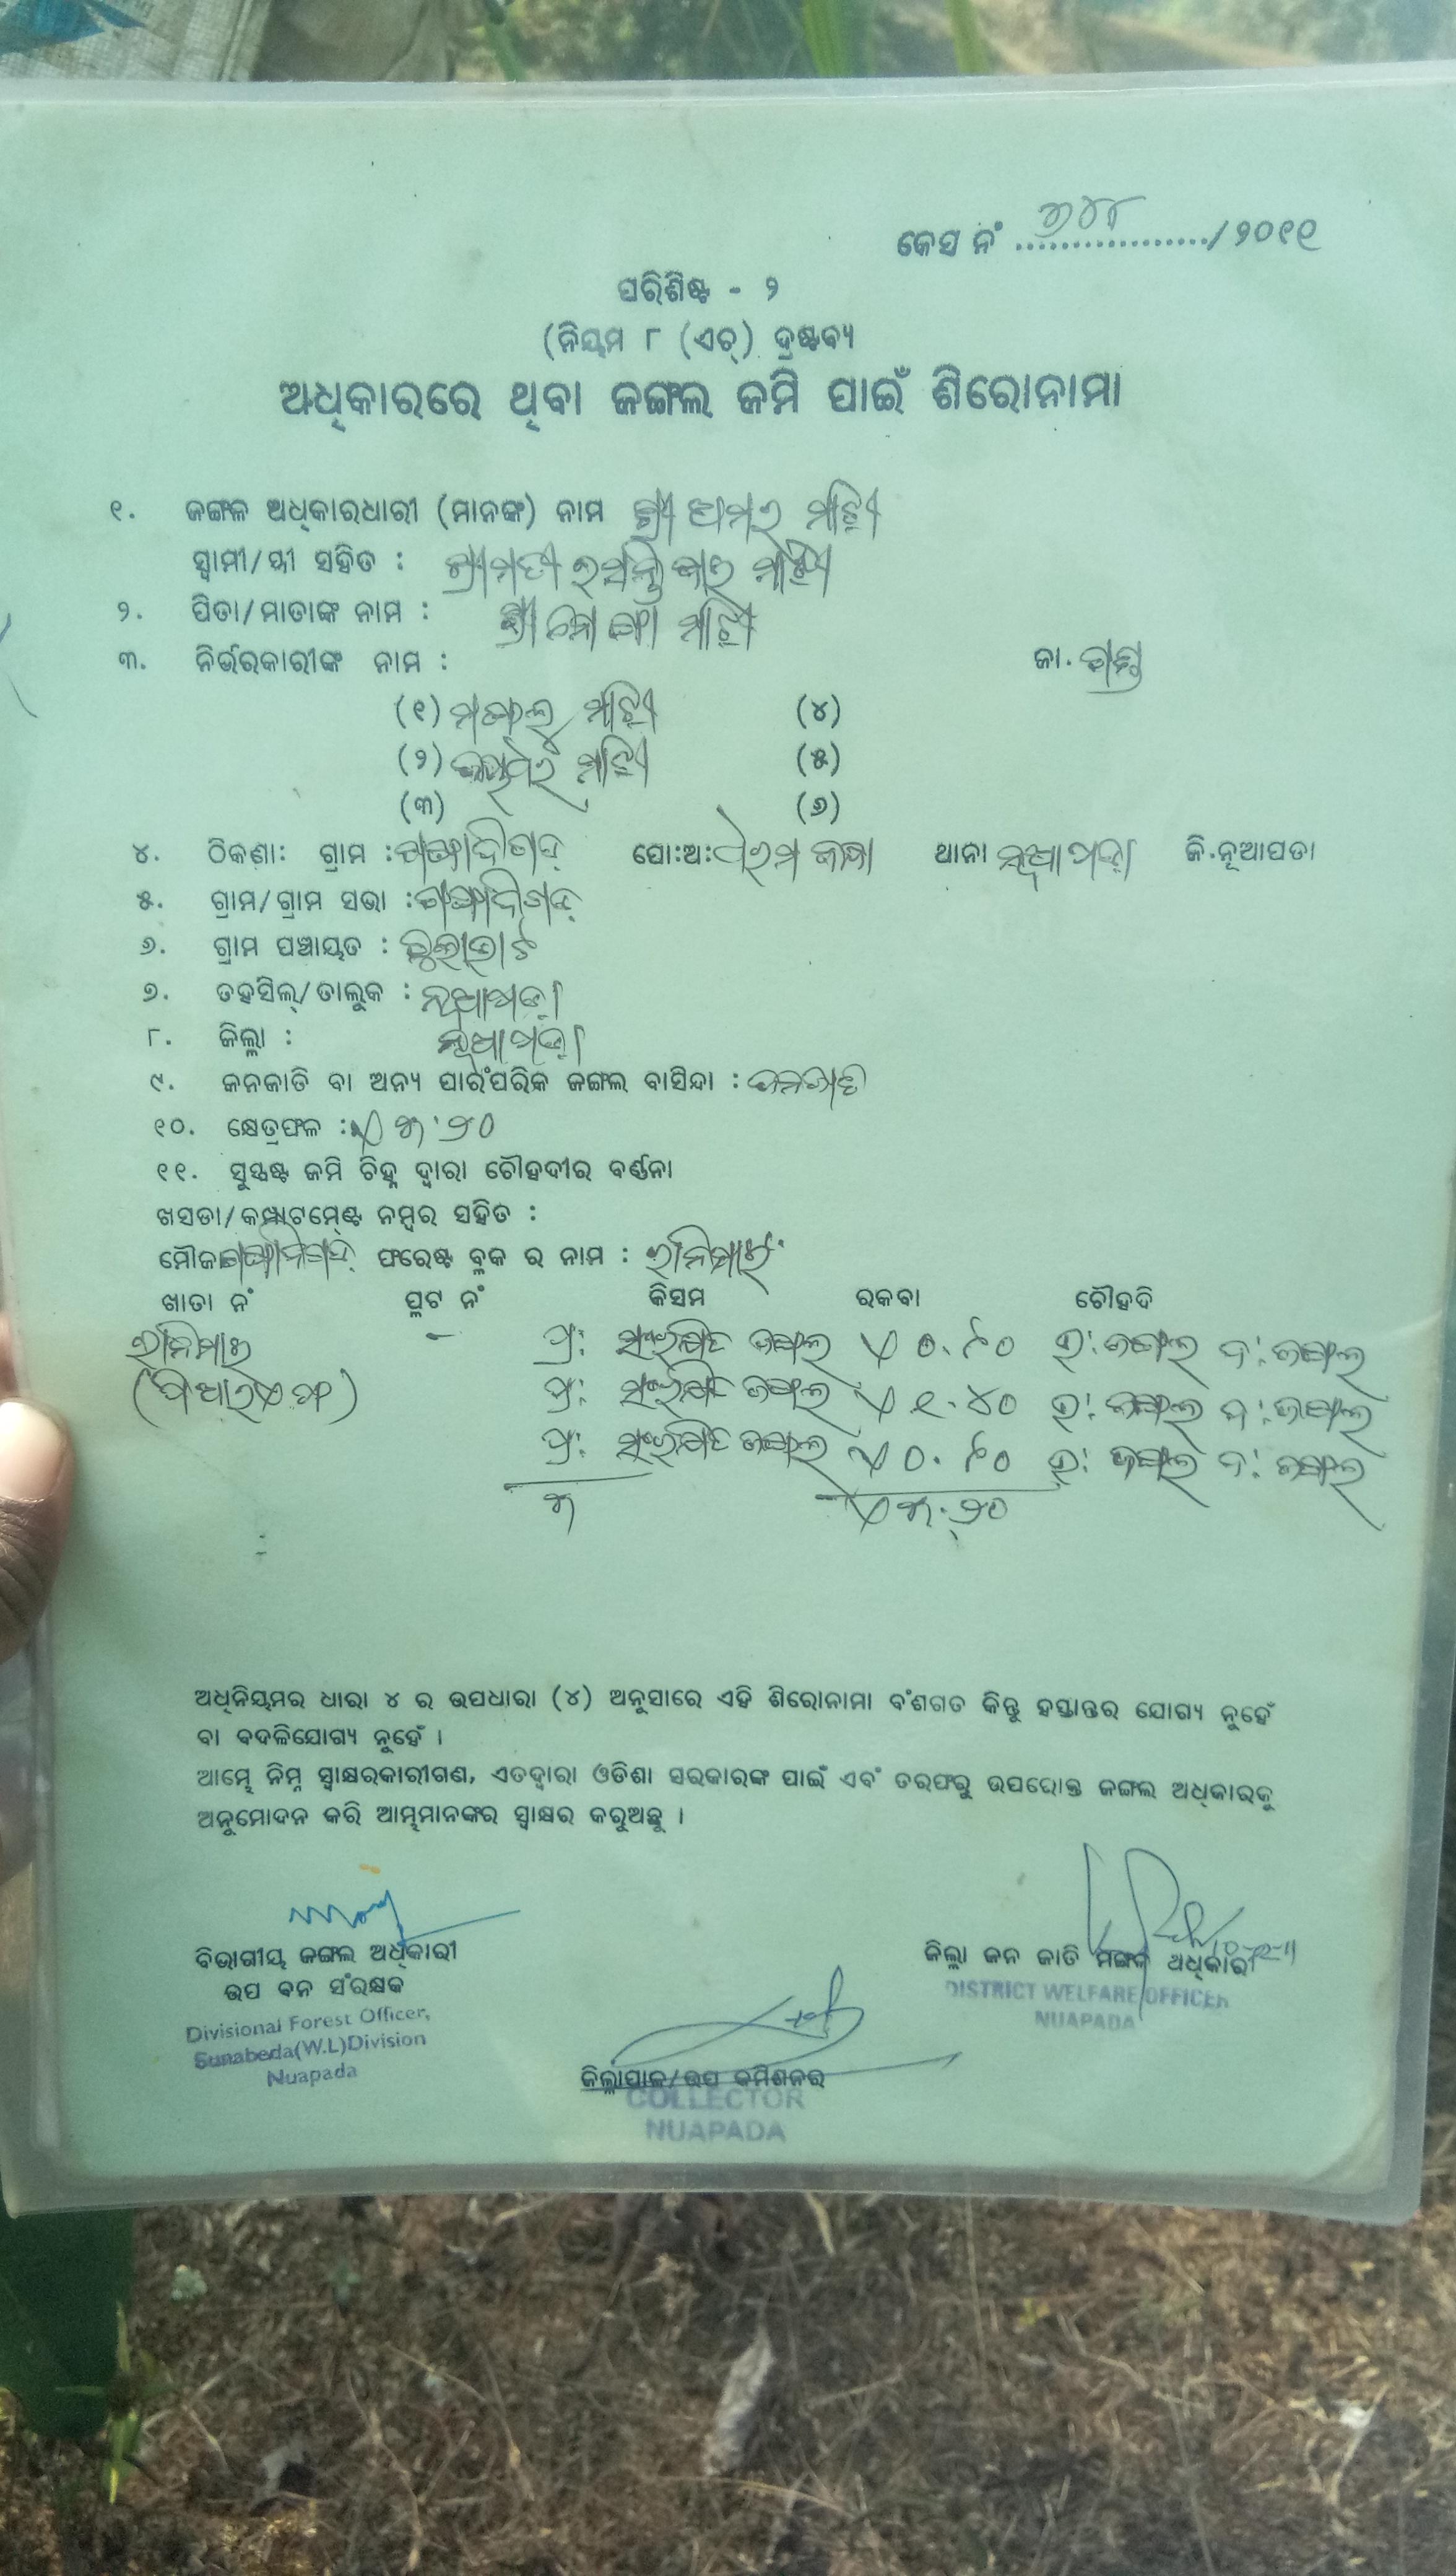 କେସ ନଂ ୩୪୮/୨୦୧୧
ପରିଶିଷ୍ଟ - ୨
(ନିୟମ ୮ (ଏଚ୍) ଦ୍ରଷ୍ଟବ୍ୟ
ଅଧିକାରରେ ଥିବା ଜଙ୍ଗଲ ଜମି ପାଇଁ ଶିରୋନାମା
୧. ଜଙ୍ଗଳ ଅଧିକାରଧାରୀ (ମାନଙ୍କ) ନାମ ଶ୍ରୀ ଅମର ମାଝି
ସ୍ୱାମୀ/ସ୍ତ୍ରୀ ସହିତ : ଶ୍ରୀମତୀ ମାଝି
୨. ପିତା/ମାତାଙ୍କ ନାମ : ଶ୍ରୀ ମାଝି
୩. ନିର୍ଭରକାରୀଙ୍କ ନାମ : ଜା.
(୧) ମାଝି (୪)
(୨) ମାଝି (୫)
(୩) (୬)
୪. ଠିକଣା: ଗ୍ରାମ : ପୋ:ଅ: ଥାନା ନୂଆପଡ଼ା ଜି.ନୂଆପଡା
୫. ଗ୍ରାମ/ଗ୍ରାମ ସଭା :
୬. ଗ୍ରାମ ପଞ୍ଚାୟତ :
୭. ତହସିଲ୍/ତାଲୁକ : ନୂଆପଡ଼ା
୮. ଜିଲ୍ଲା : ନୂଆପଡ଼ା
୯. ଜନଜାତି ବା ଅନ୍ୟ ପାରଂପରିକ ଜଙ୍ଗଲ ବାସିନ୍ଦା : ଜନଜାତି
୧୦. କ୍ଷେତ୍ରଫଳ : ଏ ୩.୨୦
୧୧. ସୁସ୍ପଷ୍ଟ ଜମି ଚିହ୍ନ ଦ୍ୱାରା ଚୌହଦୀର ବର୍ଣ୍ଣନା
ଖସଡା/କମ୍ପାଟମେଣ୍ଟ ନମ୍ବର ସହିତ :
ମୌଜା ଫରେଷ୍ଟ ବ୍ଲକ ର ନାମ :
ଖାତା ନଂ ପ୍ଳଟ ନଂ କିସମ ରକବା ଚୌହଦି
- ପ୍ର: ସଂରକ୍ଷିତ ଜଙ୍ଗଲ ଏ ୦.୮୦ ଉ: ଜଙ୍ଗଲ ଦ: ଜଙ୍ଗଲ
ପ୍ର: ସଂରକ୍ଷିତ ଜଙ୍ଗଲ ଏ ୧.୪୦ ଉ: ଜଙ୍ଗଲ ଦ: ଜଙ୍ଗଲ
ପ୍ର: ସଂରକ୍ଷିତ ଜଙ୍ଗଲ ଏ ୦.୮୦ ଉ: ଜଙ୍ଗଲ ଦ: ଜଙ୍ଗଲ
୩ ଏ ୩.୨୦
ଅଧିନିୟମର ଧାରା ୪ ର ଉପଧାରା (୪) ଅନୁସାରେ ଏହି ଶିରୋନାମା ବଂଶଗତ କିନ୍ତୁ ହସ୍ତାନ୍ତର ଯୋଗ୍ୟ ନୁହେଁ
ବା ବଦଳିଯୋଗ୍ୟ ନୁହେଁ ।
ଆମ୍ଭେ ନିମ୍ନ ସ୍ୱାକ୍ଷରକାରୀଗଣ, ଏତଦ୍ୱାରା ଓଡିଶା ସରକାରଙ୍କ ପାଇଁ ଏବଂ ତରଫରୁ ଉପରୋକ୍ତ ଜଙ୍ଗଲ ଅଧିକାରକୁ
ଅନୁମୋଦନ କରି ଆମ୍ଭମାନଙ୍କର ସ୍ୱାକ୍ଷର କରୁଅଛୁ ।
ବିଭାଗୀୟ ଜଙ୍ଗଲ ଅଧିକାରୀ
ଉପ ବନ ସଂରକ୍ଷକ
Divisional Forest Officer,
Sunabeda(W.L)Division
Nuapada
ଜିଲ୍ଲା ଜନ ଜାତି ମଙ୍ଗଳ ଅଧିକାରୀ
DISTRICT WELFARE OFFICER
NUAPADA
ଜିଲ୍ଲାପାଳ/ଉପ କମିଶନର
COLLECTOR
NUAPADA